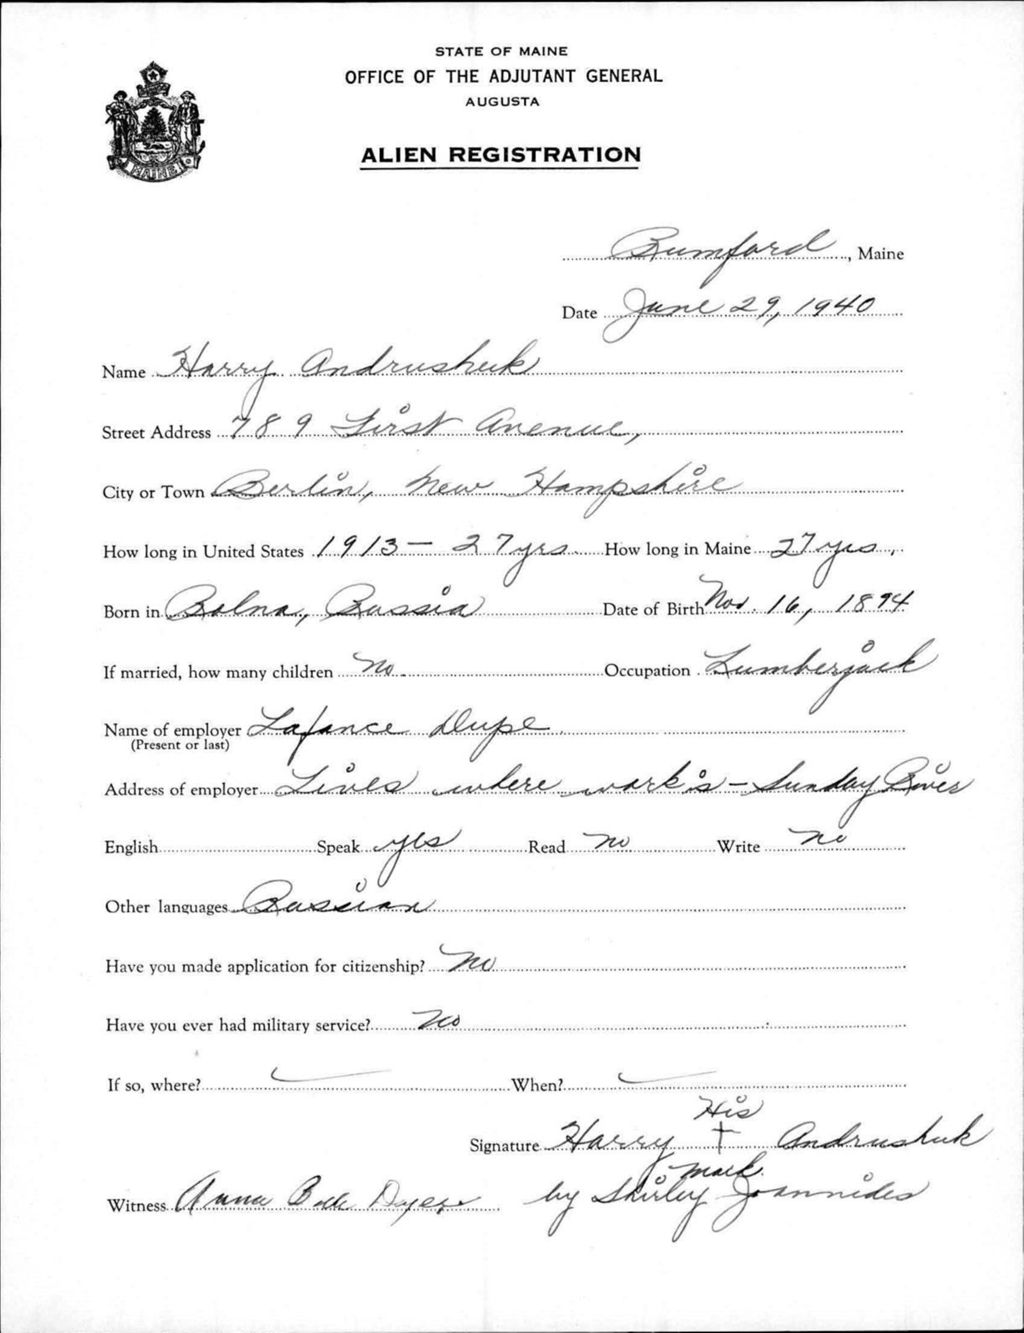 STATE OF MAINE
OFFICE OF THE ADJUTANT GENERAL
AUGUSTA
ALIEN REGISTRATION
MAINE
Rumford, Maine
Date June 29, 1940
Name Harry Andrushuk
Street Address 789 First Avenue,
City or Town Berlin, New Hampshire
How long in United States 1913 - 27 yrs How long in Maine 27 yrs.
Born in Bolna, Russia Date of Birth Nov. 16, 1894
If married, how many children No. Occupation Lumberjack
Name of employer Lafance Dupe
(Present or last)
Address of employer Lives where works - Sunday River
English Speak yes Read No Write No
Other languages Russian
Have you made application for citizenship? No
Have you ever had military service? No
If so, where? When?
His
Signature Harry Andrushuk
mark
Witness Anna Dyer by Shirley Joannides